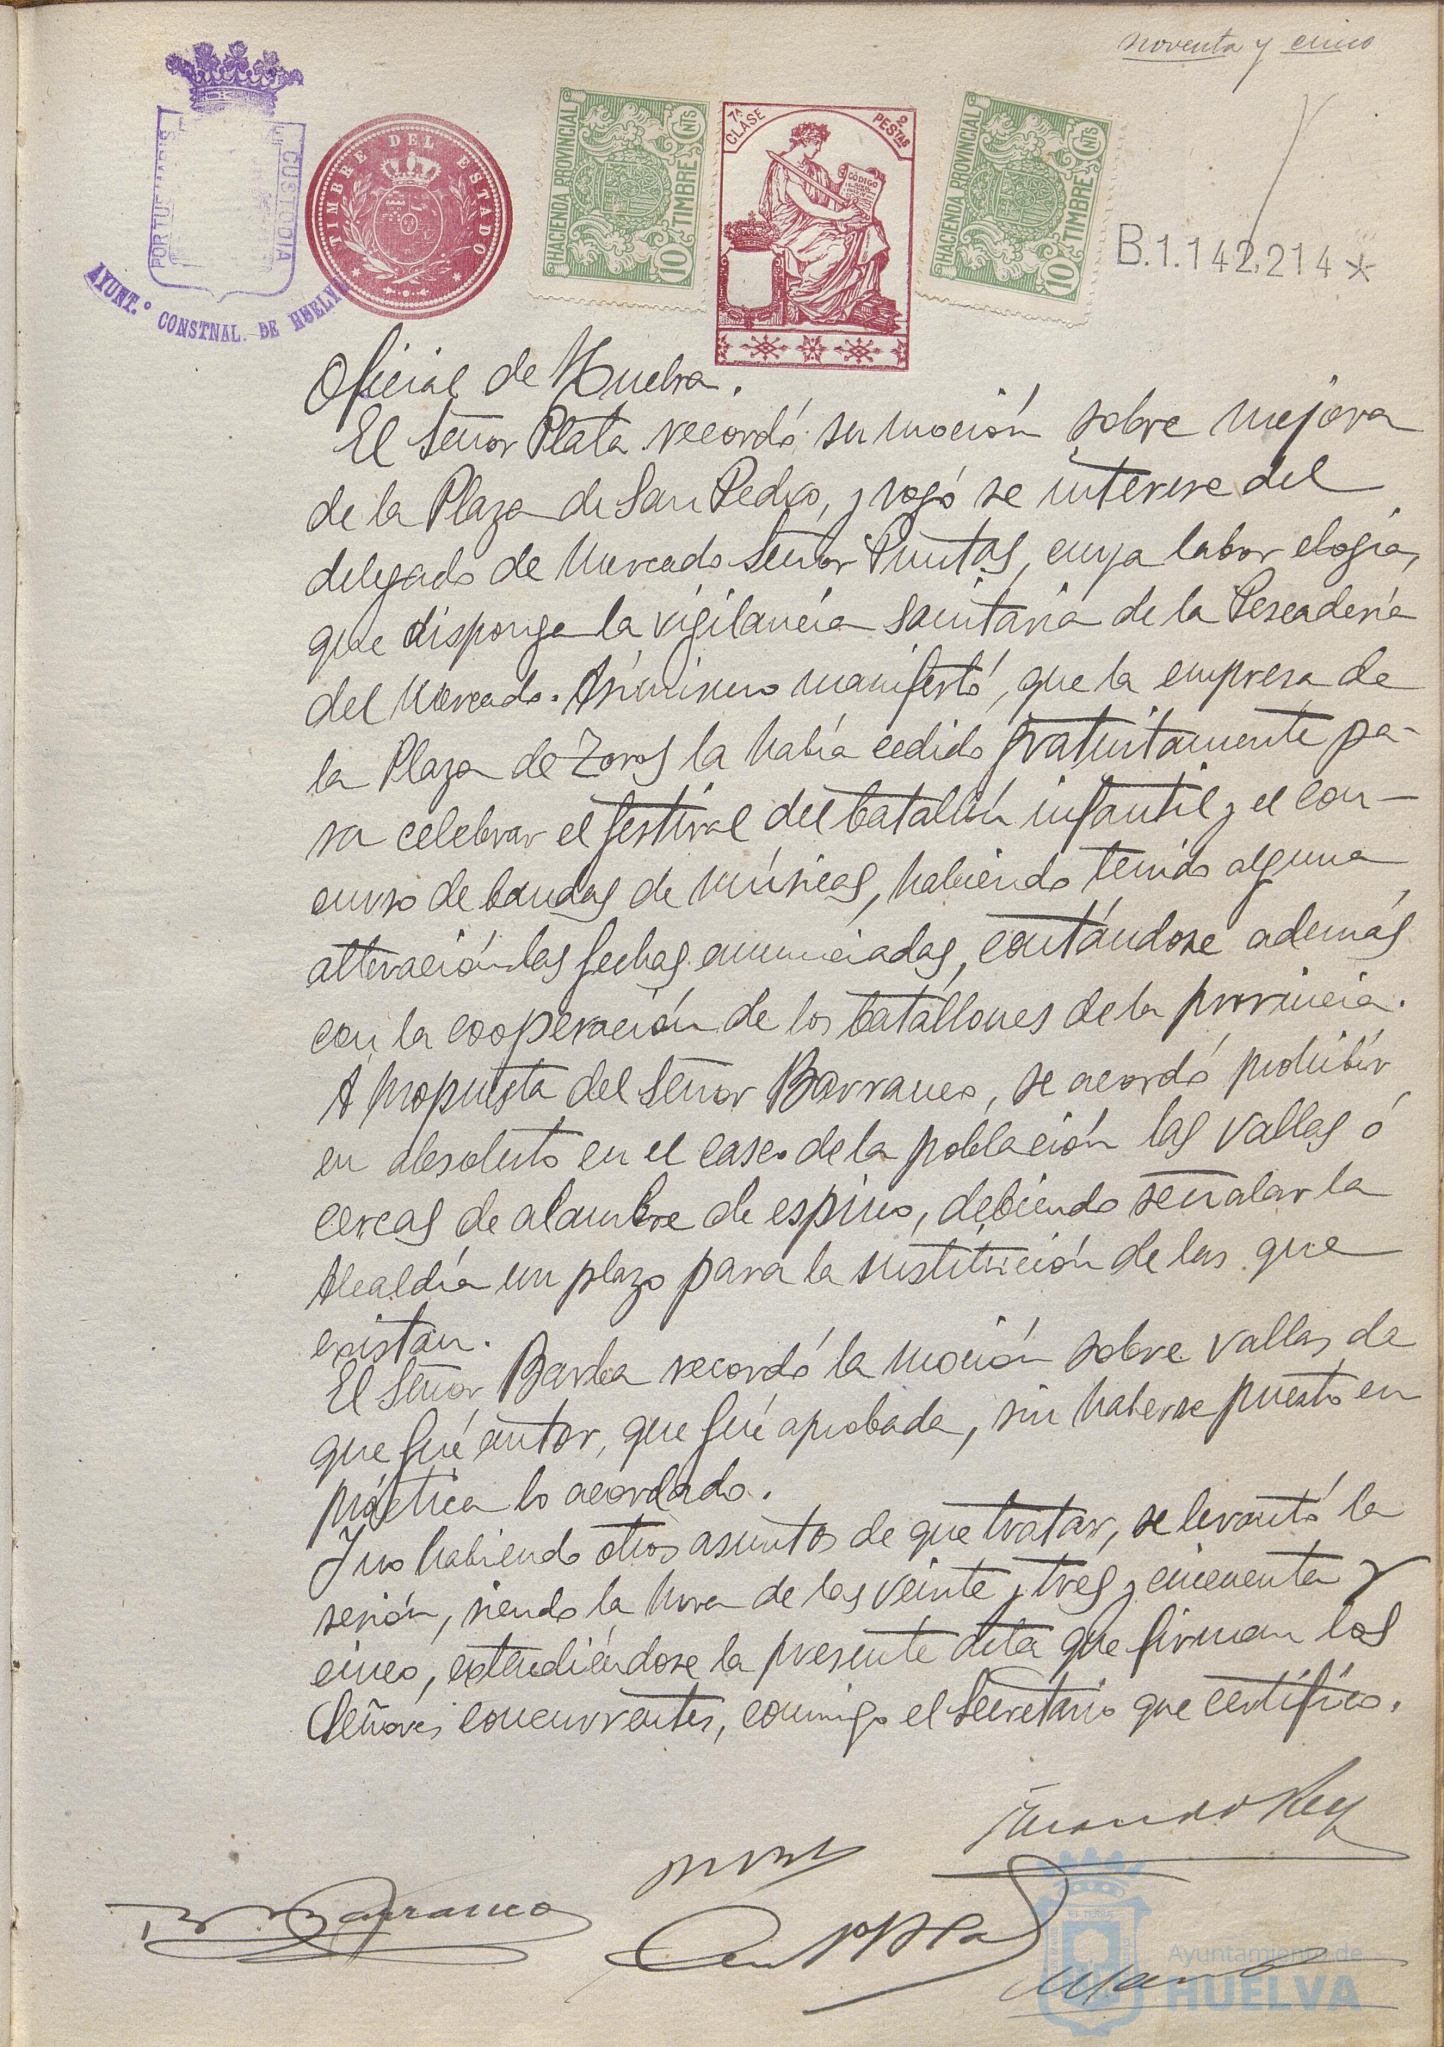 noventa y cinco
PORTUS MARIS
CUSTODIA
AYUNT.º CONSTNAL. DE HUELVA
TIMBRE DEL ESTADO
HACIENDA PROVINCIAL
10 CNTS
TIMBRE
7ª CLASE
2 PESTAS
CÓDIGO
HACIENDA PROVINCIAL
10 CNTS
TIMBRE
B.1.142,214*
Oficial de Huelva.
El Señor Plata recordó su moción sobre mejora
de la Plaza de San Pedro, y rogó se interese del
delegado de Mercado Señor Puntas, cuya labor elogia,
que disponga la vigilancia sanitaria de la Pescadería
del Mercado. Asimismo manifestó, que la empresa de
la Plaza de Toros la había cedido gratuitamente pa-
ra celebrar el festival del batallón infantil y el con-
curso de bandas de músicas, habiendo tenido alguna
alteración las fechas anunciadas, contándose además
con la cooperación de los batallones de la provincia.
A propuesta del Señor Barranco, se acordó prohibir
en absoluto en el casco de la población las vallas ó
cercas de alambre de espino, debiendo señalar la
Alcaldía un plazo para la sustitución de las que
existan.
El Señor Barba recordó la moción sobre vallas de
que fué autor, que fué aprobada, sin haberse puesto en
práctica lo acordado.
Y no habiendo otros asuntos de que tratar, se levantó la
sesión, siendo la hora de las veinte y tres y cincuenta y
cinco, extendiéndose la presente acta que firman los
Señores concurrentes, conmigo el Secretario que certifico.
Barranco
Ayuntamiento de
HUELVA